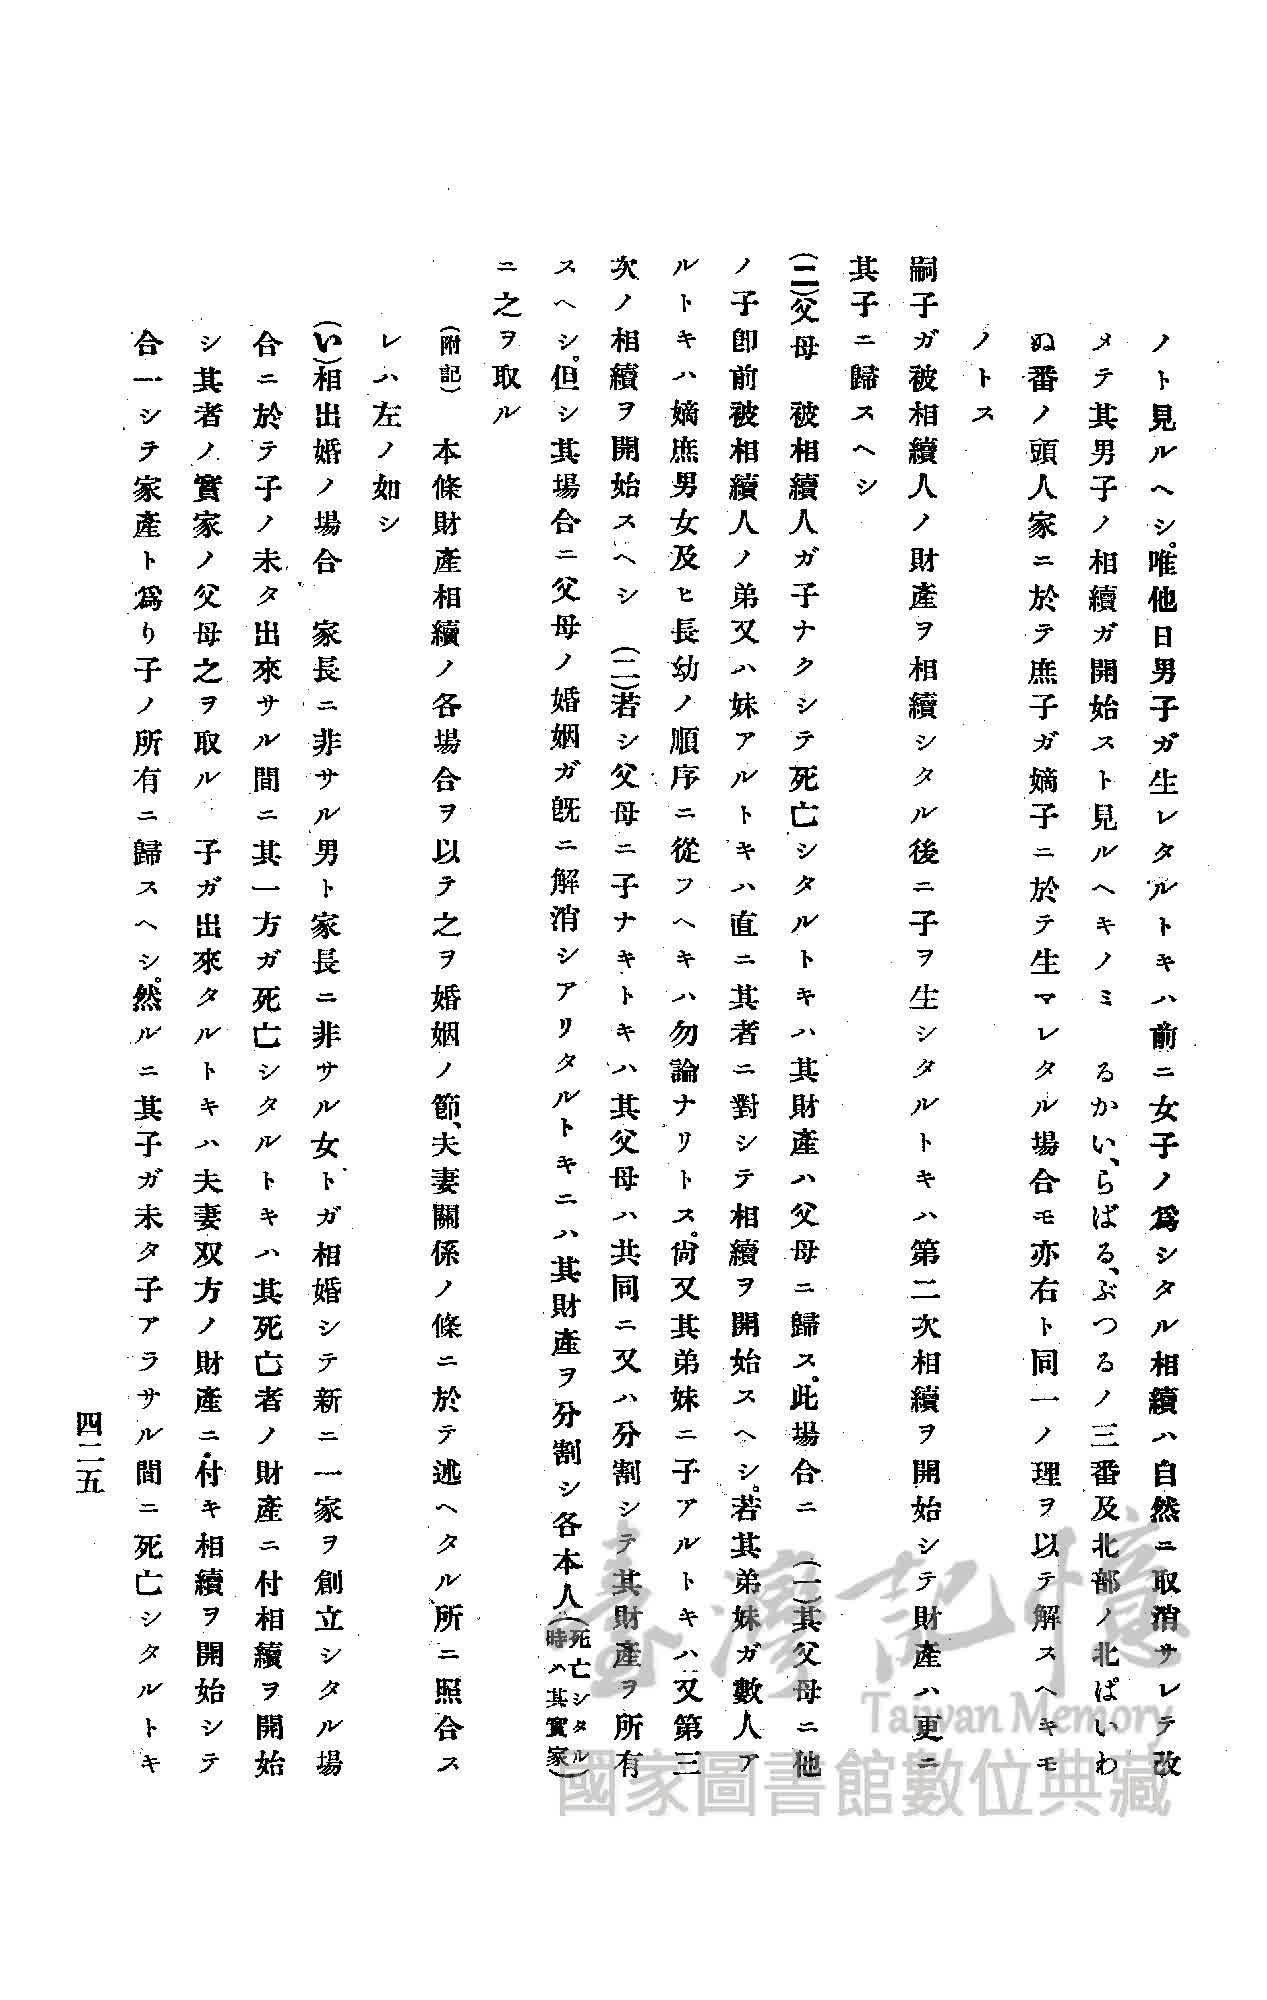 ノト見ルヘシ。唯他日男子ガ生レタルトキハ前ニ女子ノ爲シタル相續ハ自然ニ取消サレテ改
メテ其男子ノ相續ガ開始スト見ルヘキノミ　るかい、らばる、ぶつるノ三番及北部ノ北ぱいわ
ぬ番ノ頭人家ニ於テ庶子ガ嫡子ニ於テ生マレタル場合モ亦右ト同一ノ理ヲ以テ解スヘキモ
ノトス
嗣子ガ被相續人ノ財產ヲ相續シタル後ニ子ヲ生シタルトキハ第二次相續ヲ開始シテ財產ハ更ニ
其子ニ歸スヘシ
(二)父母　被相續人ガ子ナクシテ死亡シタルトキハ其財產ハ父母ニ歸ス。此場合ニ　(一)其父母ニ他
ノ子卽前被相續人ノ弟又ハ妹アルトキハ直ニ其者ニ對シテ相續ヲ開始スヘシ。若其弟妹ガ數人ア
ルトキハ嫡庶男女及ヒ長幼ノ順序ニ從フヘキハ勿論ナリトス。尙又其弟妹ニ子アルトキハ又第三
次ノ相續ヲ開始スヘシ　(二)若シ父母ニ子ナキトキハ其父母ハ共同ニ又ハ分割シテ其財產ヲ所有
スヘシ。但シ其場合ニ父母ノ婚姻ガ旣ニ解消シアリタルトキニハ其財產ヲ分割シ各本人(死亡シタル時ハ其實家)
ニ之ヲ取ル
(附記)　本條財產相續ノ各場合ヲ以テ之ヲ婚姻ノ節、夫妻關係ノ條ニ於テ述ヘタル所ニ照合ス
レハ左ノ如シ
(い)相出婚ノ場合　家長ニ非サル男ト家長ニ非サル女トガ相婚シテ新ニ一家ヲ創立シタル場
合ニ於テ子ノ未タ出來サル間ニ其一方ガ死亡シタルトキハ其死亡者ノ財產ニ付相續ヲ開始
シ其者ノ實家ノ父母之ヲ取ル　子ガ出來タルトキハ夫妻双方ノ財產ニ付キ相續ヲ開始シテ
合一シテ家產ト爲り子ノ所有ニ歸スヘシ。然ルニ其子ガ未タ子アラサル間ニ死亡シタルトキ
四二五
臺灣記憶
Taiwan Memory
國家圖書館數位典藏